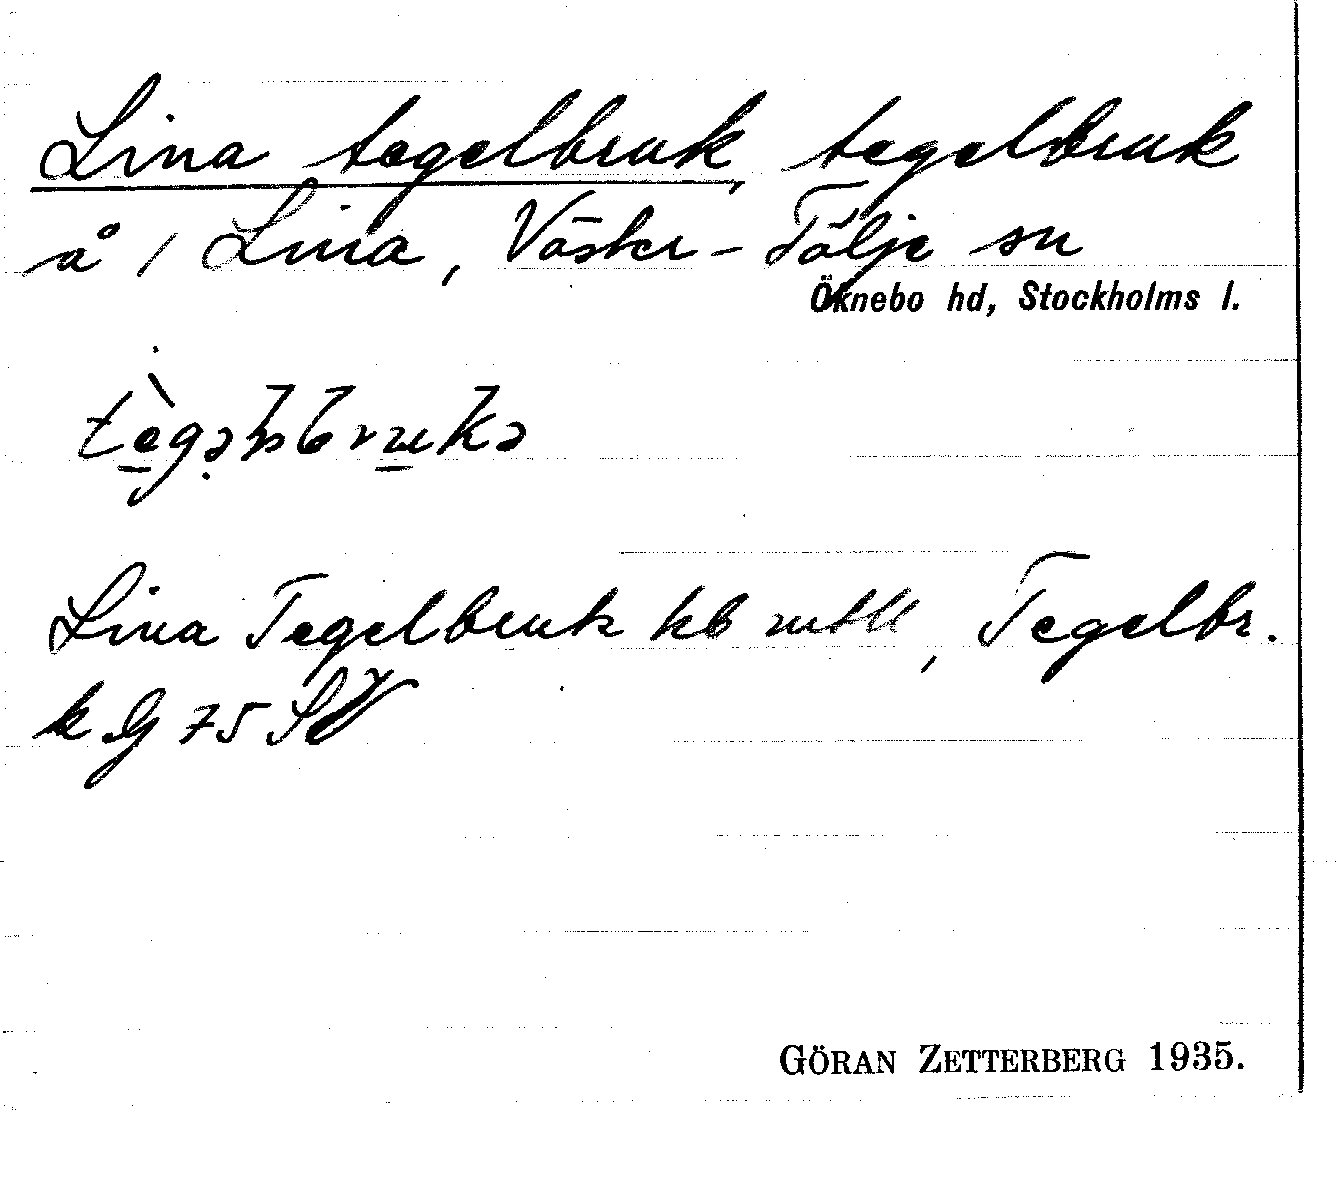 Lina tegelbruk, tegelbruk
å 1 Lina, Väster-Tälje sn
Öknebo hd, Stockholms l.
Lina Tegelbruk kb, Tegelbr.
k G 75 SV
GÖRAN ZETTERBERG 1935.